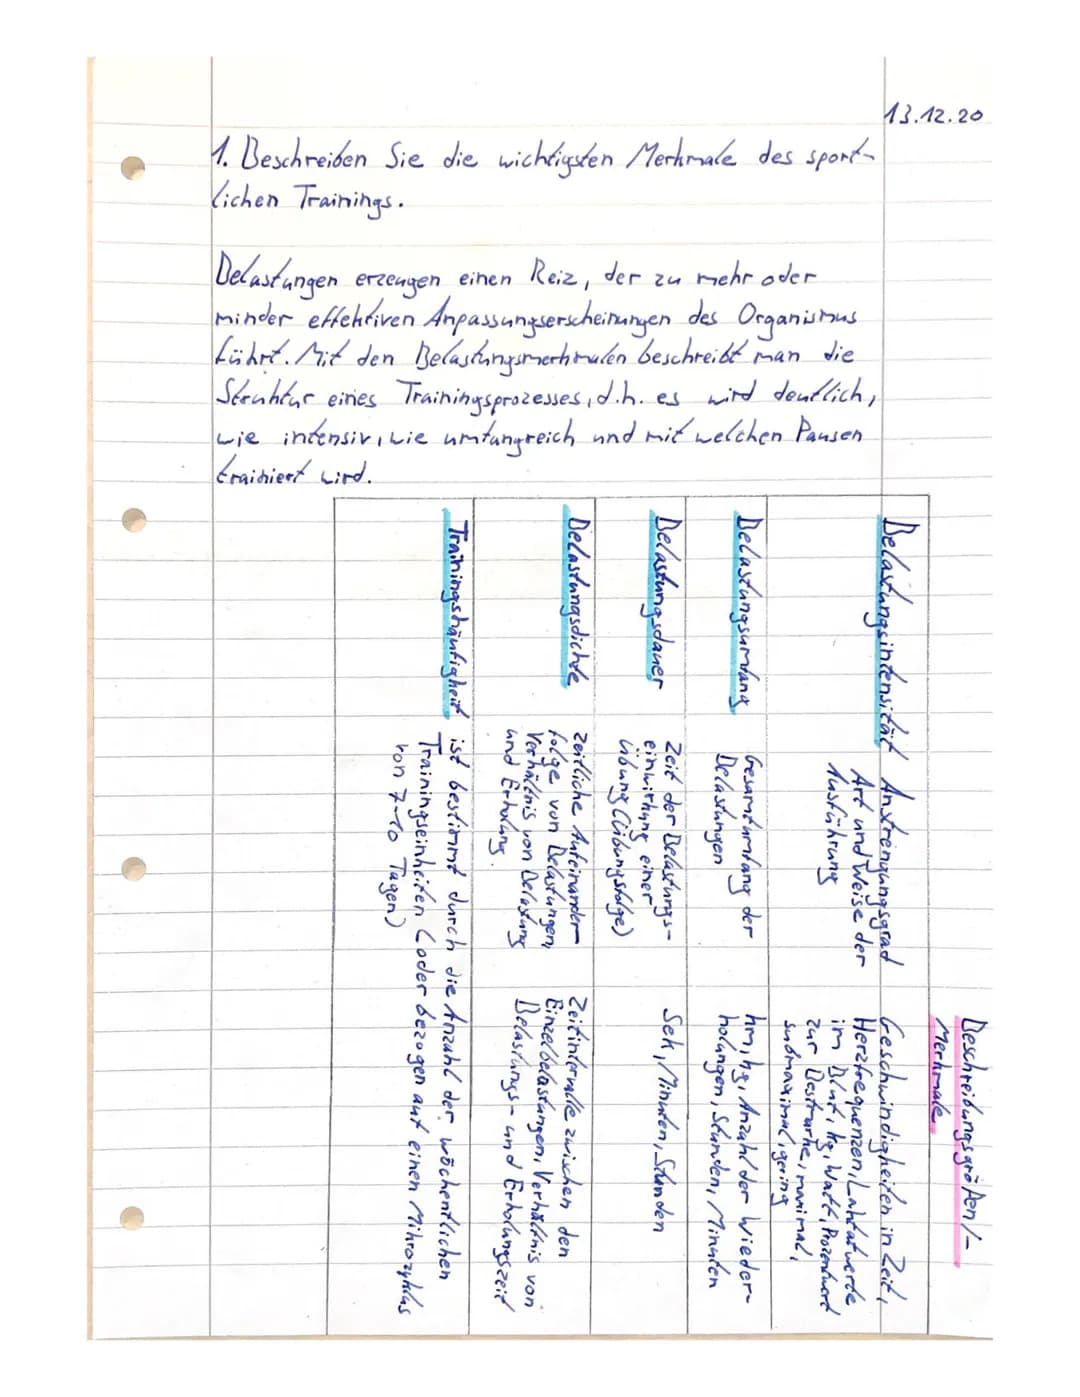 13.12.20
1. Beschreiben Sie die wichtigsten Merkmale des sport-
lichen Trainings.
Belastungen erzeugen einen Reiz, der zu mehr oder
minder effektiven Anpassungserscheinungen des Organismus
führt. Mit den Belastungsmerkmalen beschreibt man die
Struktur eines Trainingsprozesses, d.h. es wird deutlich,
wie intensiv, wie umfangreich und mit welchen Pausen
trainiert wird.
Beschreibungsgrößen/-
Merkmale
Belastungsintensität
Anstrengungsgrad
Art und Weise der
Ausführung
Geschwindigkeiten in Zeit,
Herzfrequenzen, Laktatwerte
im Blut, kg, Watt, Prozentwert
zur Bestmarke, maximal,
submaximal, gering
Belastungsumfang
Gesamtumfang der
Belastungen
km, kg, Anzahl der Wieder-
holungen, Stunden, Minuten
Belastungsdauer
Zeit der Belastungs-
einwirkung einer
Übung (Übungsfolge)
Sek, Minuten, Stunden
Belastungsdichte
Zeitliche Aufeinander-
folge von Belastungen,
Verhältnis von Belastung
und Erholung.
Zeitintervalle zwischen den
Einzelbelastungen, Verhältnis von
Belastungs- und Erholungszeit
Trainingshäufigkeit
ist bestimmt durch die Anzahl der wöchentlichen
Trainingseinheiten (oder bezogen auf einen Mikrozyklus
von 7-10 Tagen)